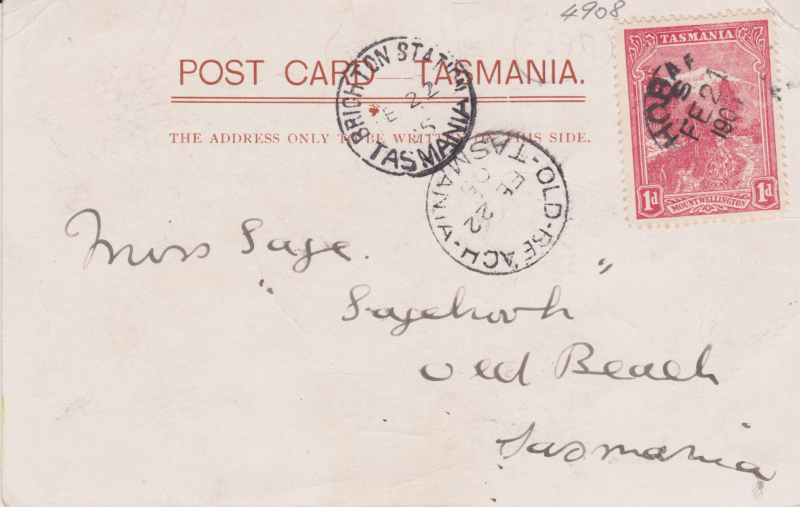 4908
POST CARD—TASMANIA.
THE ADDRESS ONLY TO BE WRITTEN ON THIS SIDE.
BRIGHTON STATION
FE 22
TASMANIA
OLD-BEACH-
FE 22
TASMANIA
TASMANIA
FE 21
1d
MOUNT WELLINGTON
1d
Miss Sage.
"Sagehurst"
Old Beach
Tasmania